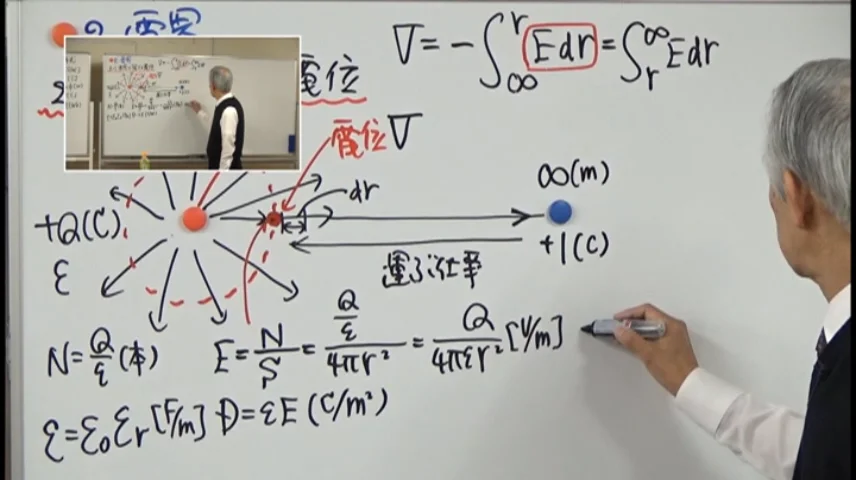 2 電界
V = -∫∞^r Edr = ∫r^∞ Edr
2 電位
電位 V
dr
∞(m)
+Q(C)
+1(C)
ε
運ぶ仕事
N = Q/ε (本)
E = N/S = (Q/ε)/4πr² = Q/4πεr² [V/m]
ε = ε₀εr [F/m] D = εE (C/m²)